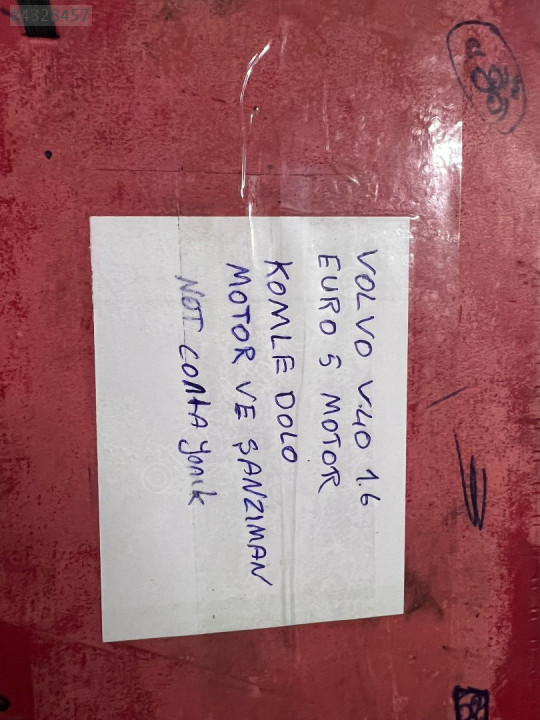 VOLVO V.40 1.6
EURO 5 MOTOR
KOMLE DOLO
MOTOR VE ŞANZIMAN
NOT CONTA YANIK